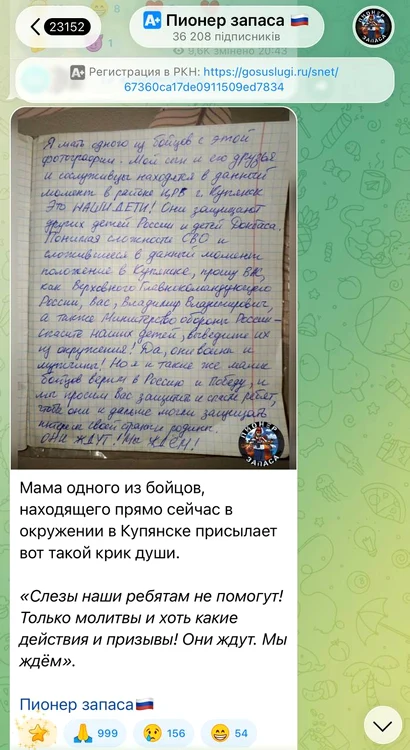 23152
A+ Пионер запаса 🇷🇺
36 208 підписників
8
1
9,6K змінено 20:43
A+ Регистрация в РКН: https://gosuslugi.ru/snet/
67360ca17de0911509ed7834
Я мать одного из бойцов с этой
фотографии. Мой сын и его друзья
и сослуживцы находятся в данный
момент в районе ЦРБ г. Купянск
Это НАШИ ДЕТИ! Они защищают
других детей России и детей Донбаса.
Понимая сложности СВО и
сложившееся в данный момент
положение в Купянске, прошу ВАС,
как Верховного Главнокомандующего
России, Вас, Владимир Владимирович,
а также Министерство обороны России -
спасите наших детей, выведите их
из окружения! Да, они воины и
мужчины! Но я и такие же мамы
бойцов верим в Россию и Победу, и
мы просим Вас защитить и ребят,
чтобы они и дальше могли защищать
интересы своей страны родины.
ОНИ ЖДУТ! МЫ ЖДЕМ!
ПИОНЕР
ЗАПАСА
Мама одного из бойцов,
находящего прямо сейчас в
окружении в Купянске присылает
вот такой крик души.
«Слезы наши ребятам не помогут!
Только молитвы и хоть какие
действия и призывы! Они ждут. Мы
ждём».
Пионер запаса🇷🇺
999 156 54